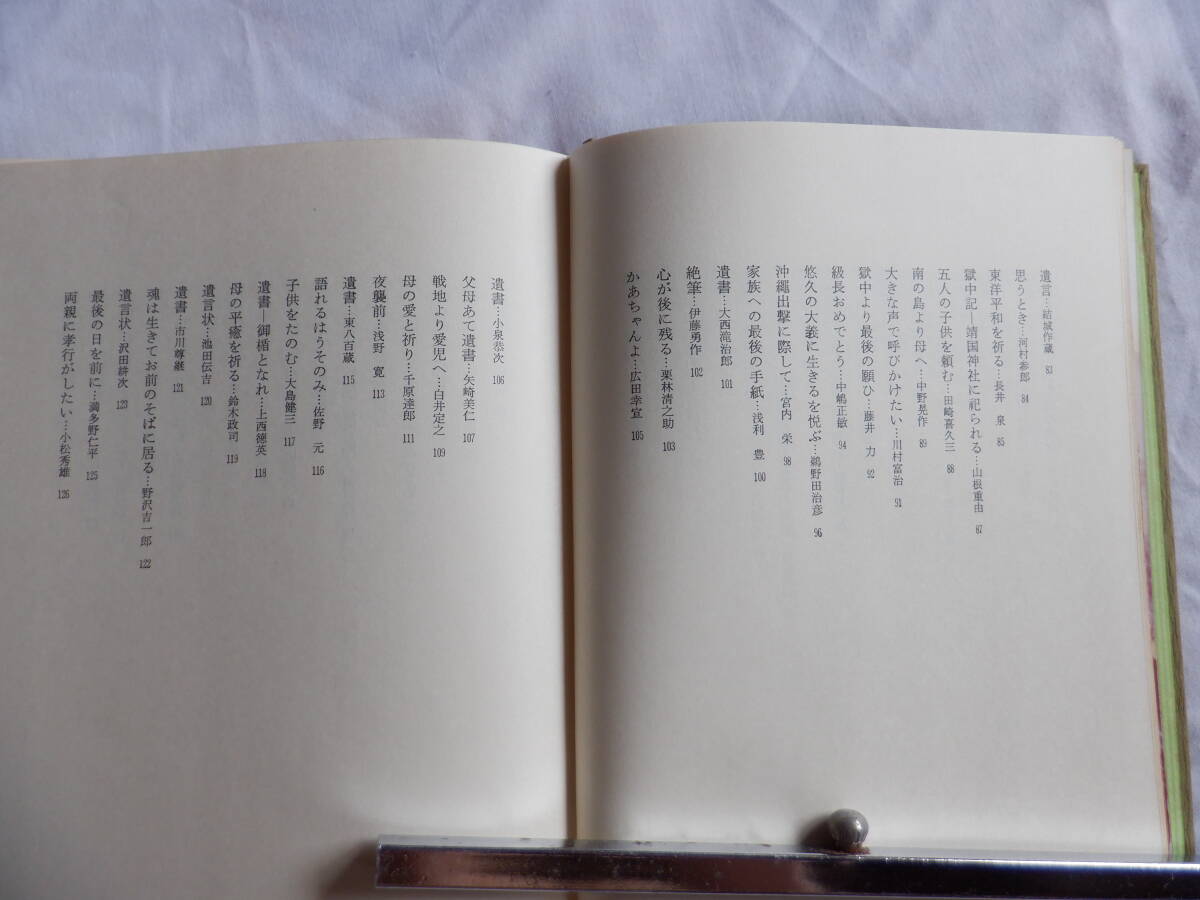 遺言…結城作蔵 83
思うとき…河村参郎 84
東洋平和を祈る…長井 泉 85
獄中記―靖国神社に祀られる…山根重由 87
五人の子供を頼む…田崎喜久三 88
南の島より母へ…中野晃作 89
大きな声で呼びかけたい…川村富治 91
獄中より最後の願ひ…藤井 力 92
級長おめでとう…中嶋正敏 94
悠久の大義に生きるを悦ぶ…鵜野田治彦 96
沖縄出撃に際して…宮内 栄 98
家族への最後の手紙…浅利 豊 100
遺書…大西滝治郎 101
絶筆…伊藤勇作 102
心が後に残る…栗林清之助 103
かあちゃんよ…広田幸宣 105
遺書…小泉恭次 106
父母あて遺書…矢崎美仁 107
戦地より愛児へ…白井定之 109
母の愛と祈り…千原達郎 111
夜襲前…浅野 寛 113
遺書…東八百蔵 115
語れるはうそのみ…佐野 元 116
子供をたのむ…大島健三 117
遺書―御楯となれ…上西徳英 118
母の平癒を祈る…鈴木政司 119
遺言状…池田伝吉 120
遺書…市川尊継 121
魂は生きてお前のそばに居る…野沢吉一郎 122
遺言状…沢田耕次 123
最後の日を前に…満多野仁平 125
両親に孝行がしたい…小松秀雄 126